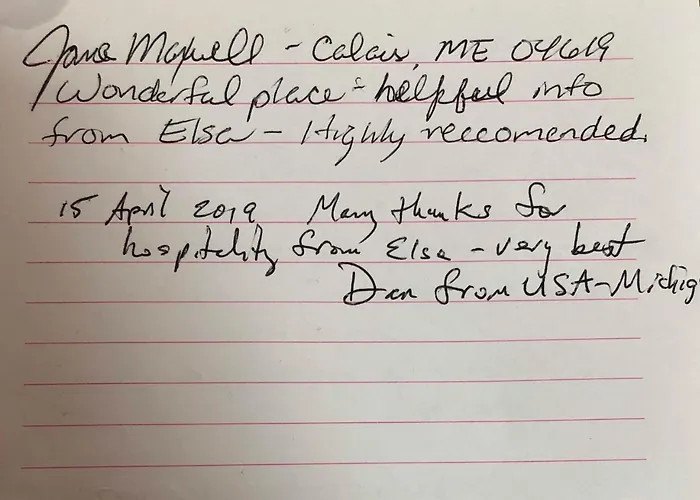 Jane Maxwell - Calais, ME 04619
Wonderful place - helpful info
from Elsa - Highly reccomended.
15 April 2019 Many thanks for
hospitality from Elsa - very best
Dan from USA-Michig